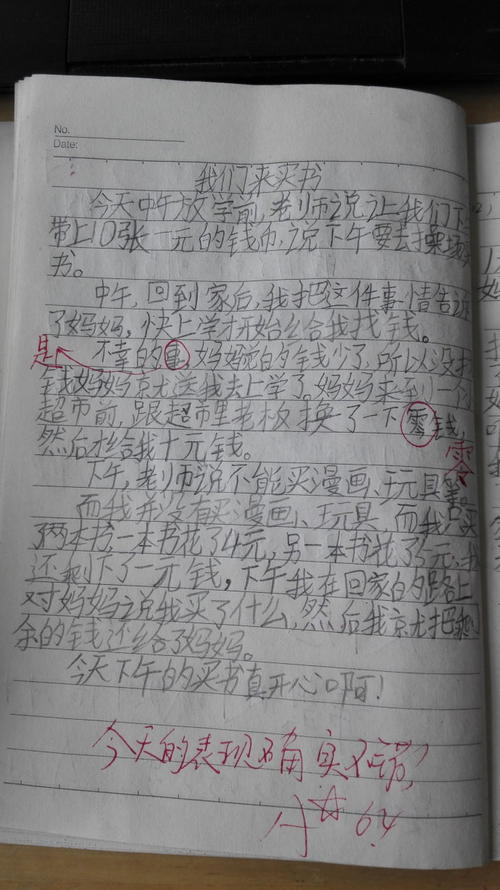 No.
Date:
我们来买书
今天中午放学前,老师说让我们下
带上10张一元的钱币,说下午要去操场
书。
中午,回到家后,我把这件事情告诉
了妈妈,快上学才开始给我找钱。
是 不幸的是,妈妈的零钱少了,所以没找
钱妈妈就送我去上学了。妈妈来到一个
超市前,跟超市里老板换了一下零钱,
零
然后才给我十元钱。
下午,老师说不能买漫画、玩具
而我并没有买漫画、玩具,而我只买
了两本书,一本书花了4元,另一本书花了5元,我
还剩下了一元钱,下午我在回家的路上
对妈妈说我买了什么,然后我就把剩
余的钱还给了妈妈。
今天下午的买书真开心啊!
今天的表现的确实不错
6.4